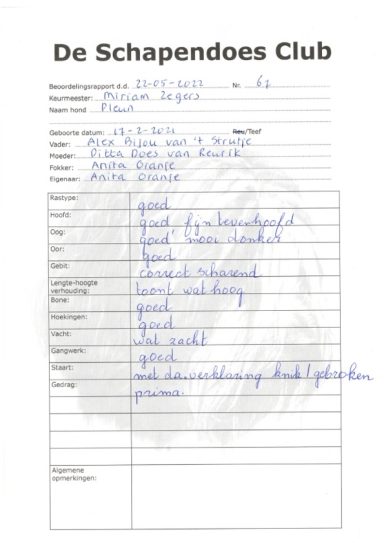 De Schapendoes Club
Beoordelingsrapport d.d. 22-05-2022 Nr. 67
Keurmeester: Miriam Zegers
Naam hond Pleun
Geboorte datum: 17-2-2021 Reu/Teef
Vader: Alex Bijou van 't Strutje
Moeder: Ditta Does van Reurik
Fokker: Anita Oranje
Eigenaar: Anita Oranje
Rastype: goed
Hoofd: goed fijn tevenhoofd
Oog: goed mooi donker
Oor: goed
Gebit: correct scharend
Lengte-hoogte
verhouding: toont wat hoog
Bone: goed
Hoekingen: goed
Vacht: wat zacht
Gangwerk: goed
Staart: met da.verklaring knik/gebroken
Gedrag: prima.
Algemene
opmerkingen: